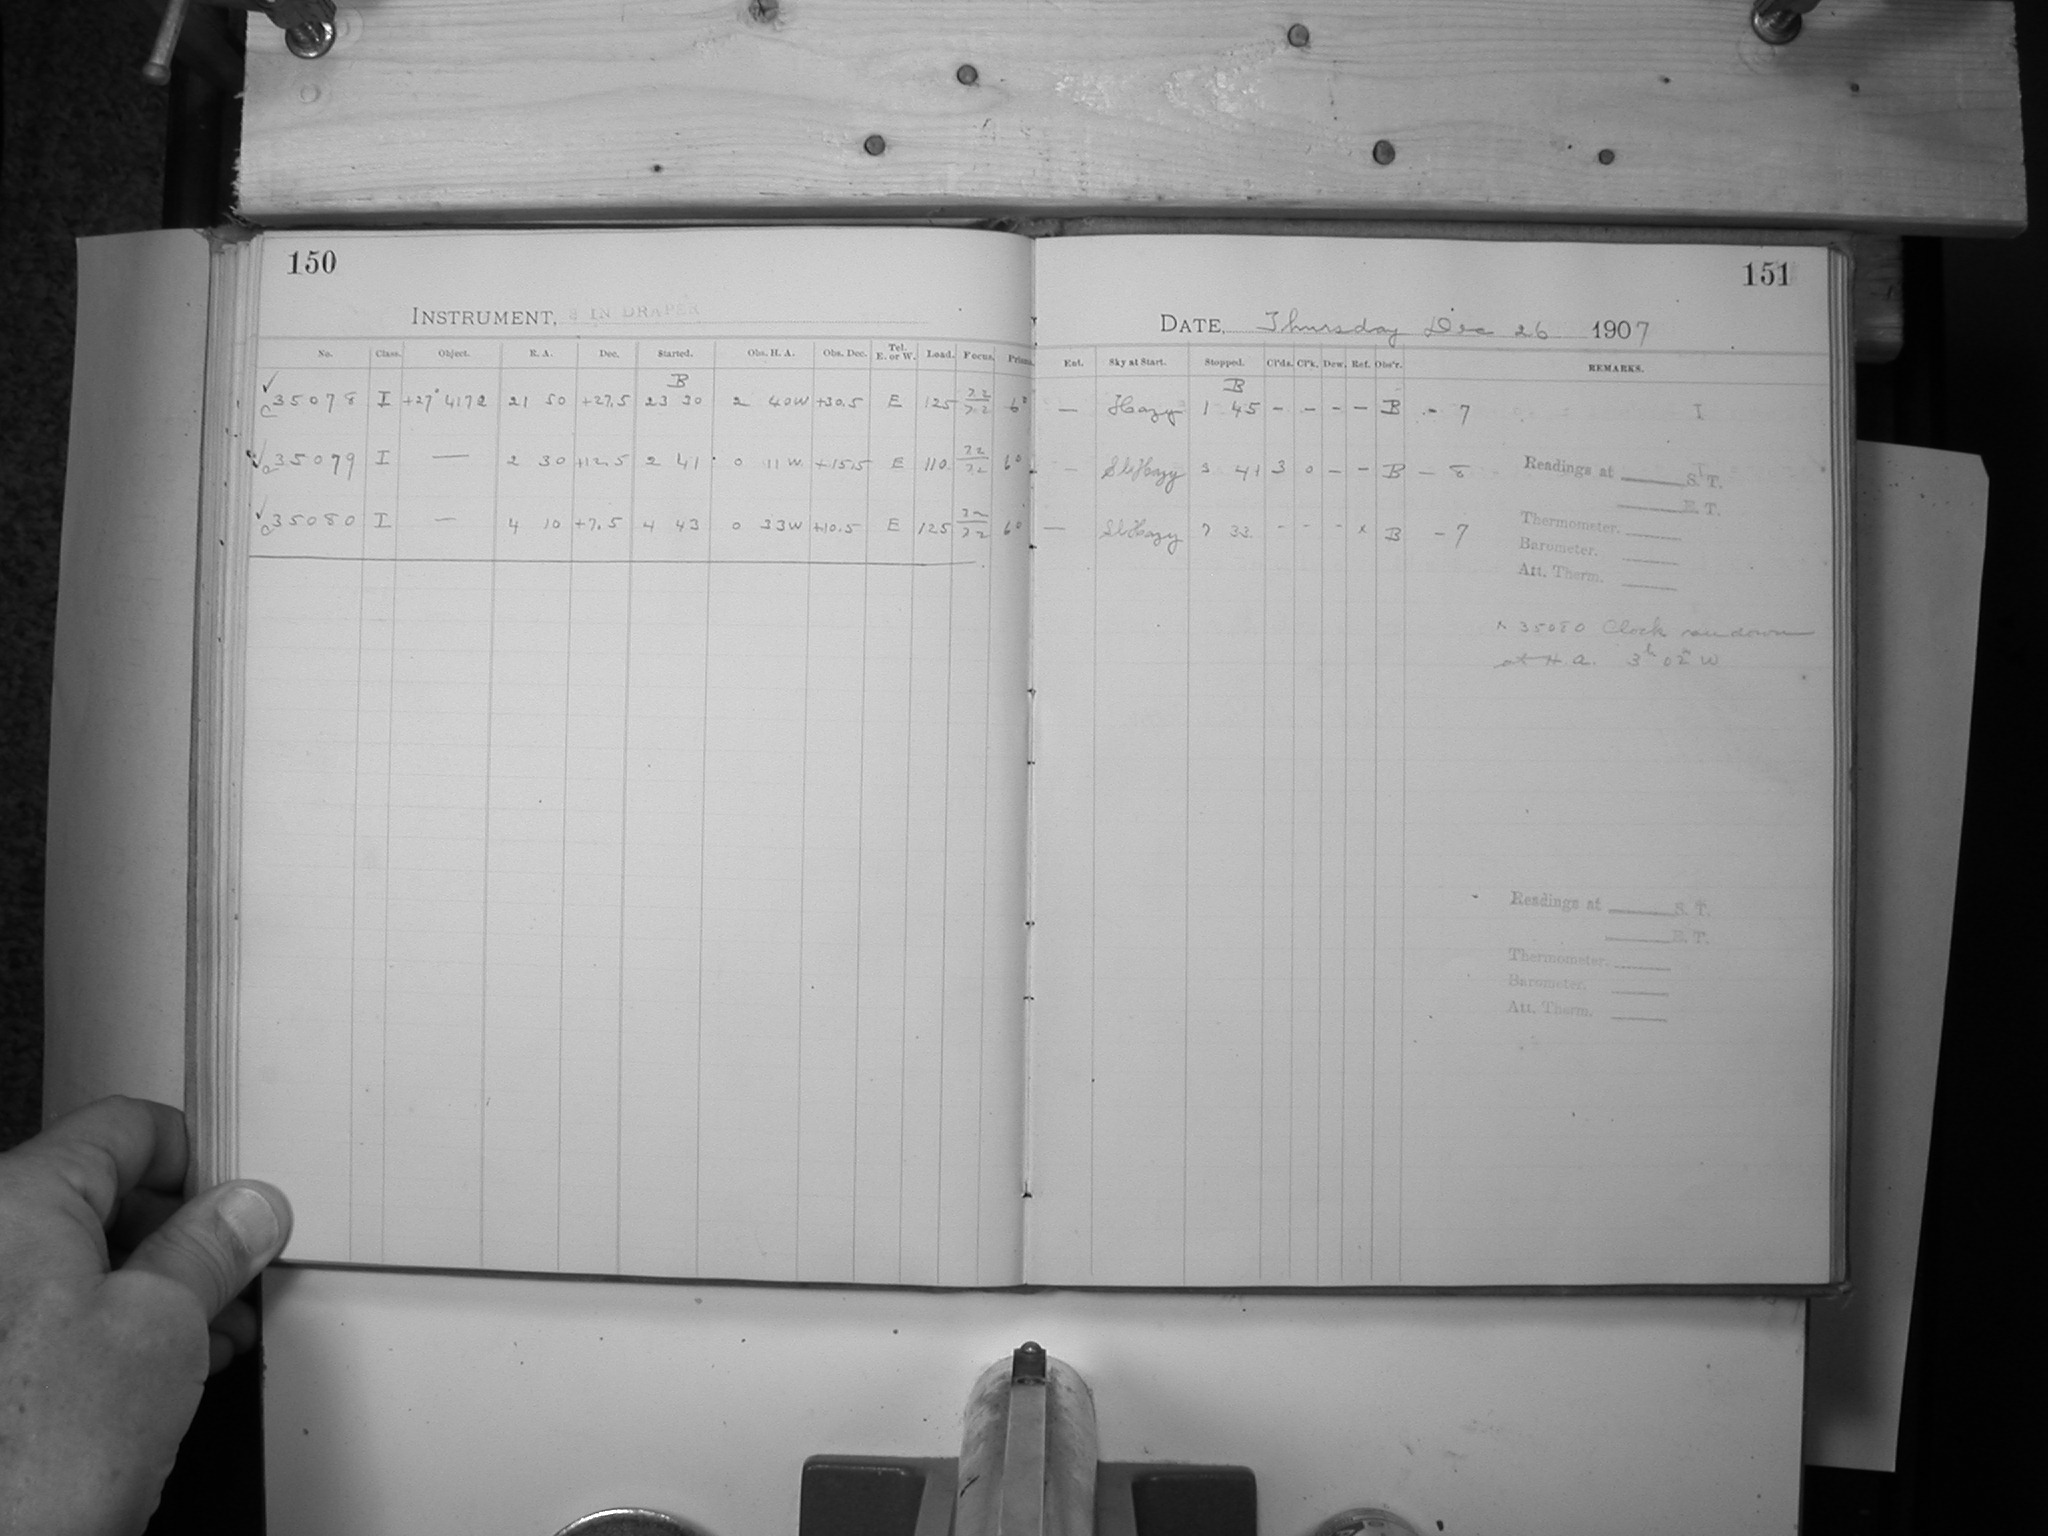 150
INSTRUMENT, 8 IN DRAPER
No. Class. Object. R. A. Dec. Started. Obs. H. A. Obs. Dec. Tel. E. or W. Load. Focus. Prism.
B
✓ C 35078 I +27° 4172 21 50 +27.5 23 30 2 40W +30.5 E 125 72/72 6°
✓ C 35079 I — 2 30 +12.5 2 41 0 11W +15.5 E 110 72/72 6°
✓ C 35080 I — 4 10 +7.5 4 43 0 33W +10.5 E 125 72/72 6°
151
DATE, Thursday Dec 26 1907
Ent. Sky at Start. Stopped. Cl'ds. Cl'k. Dew. Ref. Obs'r. REMARKS.
B
— Hazy 1 45 - - - - B - 7 I
— Sl Hazy 3 41 3 0 - - B - 8
— Sl Hazy 7 33 - - - x B - 7
Readings at S. T.
E. T.
Thermometer.
Barometer.
Att. Therm.
x 35080 Clock run down
at H. A. 3h 02m W
Readings at S. T.
E. T.
Thermometer.
Barometer.
Att. Therm.